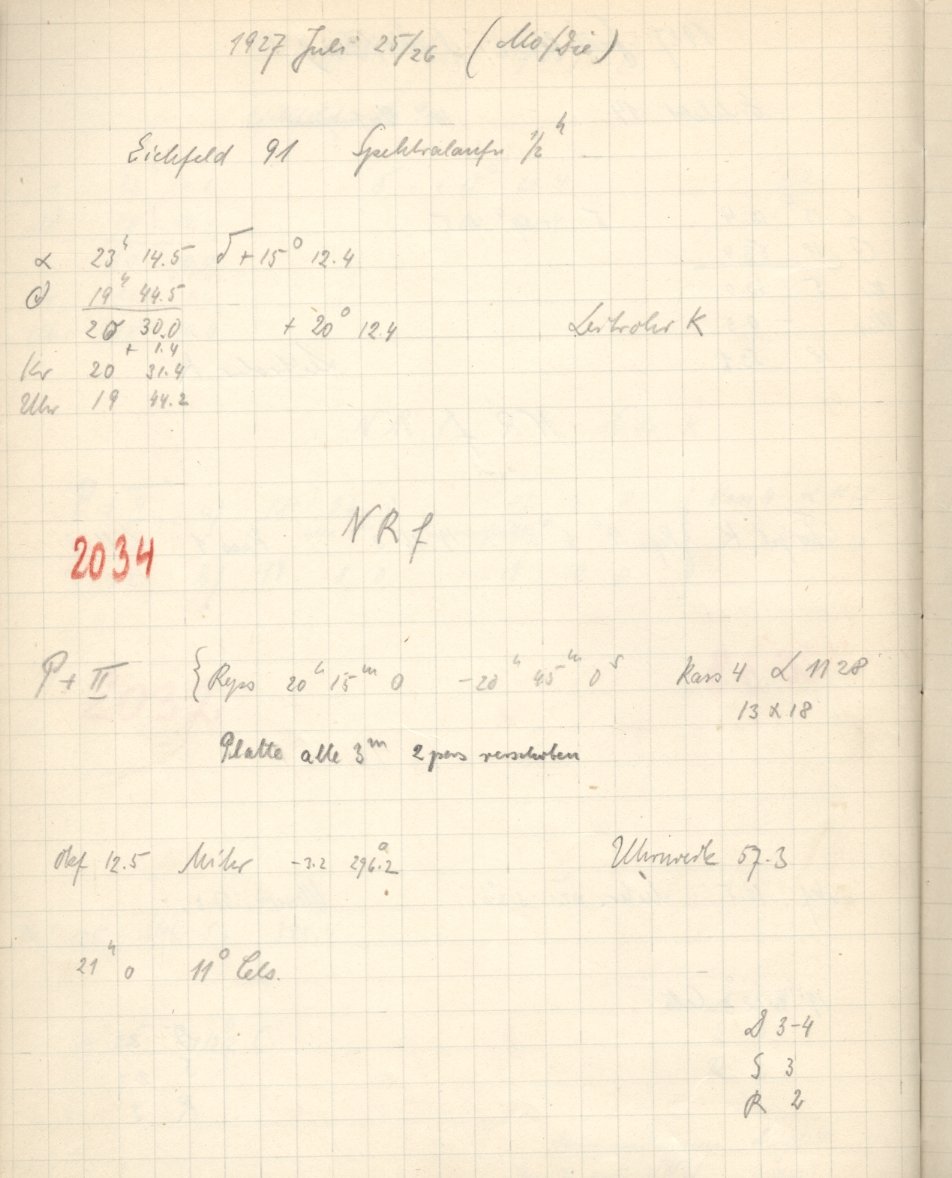 1927 Juli 25/26 (Mo/Die)
Eichfeld 91 Spektralaufn 1/2 h
α 23h 14.5 δ + 15° 12.4
19h 44.5
30.0 + 20° 12.4 Leitrohr K
+ 1.4
Kr 20 31.4
Uhr 19 44.2
NRf
2034
P + II { Reps 20h 15m 0 – 20h 45m 0s Kass 4 L 1128
13 x 18
Platte alle 3m 2 pars verschoben
Okf 12.5 Mikr -3.2 296.2° Uhrwerk 57.3
21h 0 11° Cels.
3-4
S 3
R 2